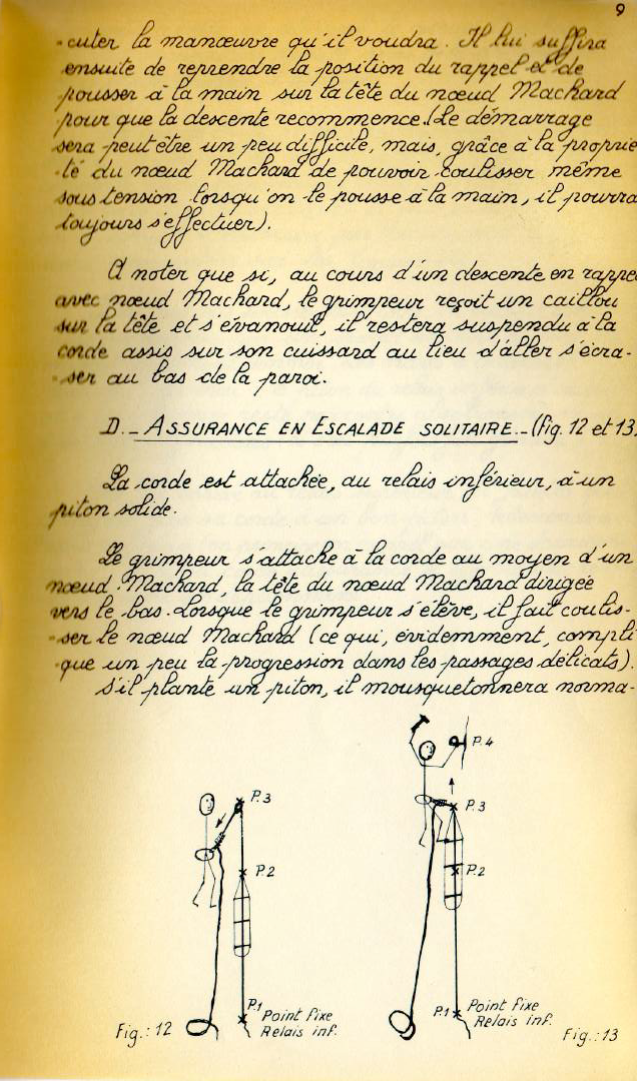 9
-cuter la manœuvre qu'il voudra. Il lui suffira
ensuite de reprendre la position du rappel et de
pousser à la main sur la tête du nœud Machard
pour que la descente recommence. (Le démarrage
sera peut être un peu difficile, mais, grâce à la proprié
-té du nœud Machard de pouvoir coulisser même
sous tension lorsqu'on le pousse à la main, il pourra
toujours s'effectuer).
A noter que si, au cours d'un descente en rappel
avec nœud Machard, le grimpeur reçoit un caillou
sur la tête et s'évanouit, il restera suspendu à la
corde assis sur son cuissard au lieu d'aller s'écra-
-ser au bas de la paroi.
D._ ASSURANCE EN ESCALADE SOLITAIRE._ (fig. 12 et 13)
La corde est attachée, au relais inférieur, à un
piton solide.
Le grimpeur s'attache à la corde au moyen d'un
nœud Machard, la tête du nœud Machard dirigée
vers le bas. Lorsque le grimpeur s'élève, il fait coulis-
-ser le nœud Machard (ce qui, évidemment, compli
-que un peu la progression dans les passages délicats).
S'il plante un piton, il mousquetonnera norma-
P.3
P.2
P.1 Point fixe
Relais inf.
Fig.: 12
P.4
P.3
P.2
P.1 Point fixe
Relais inf.
Fig.: 13